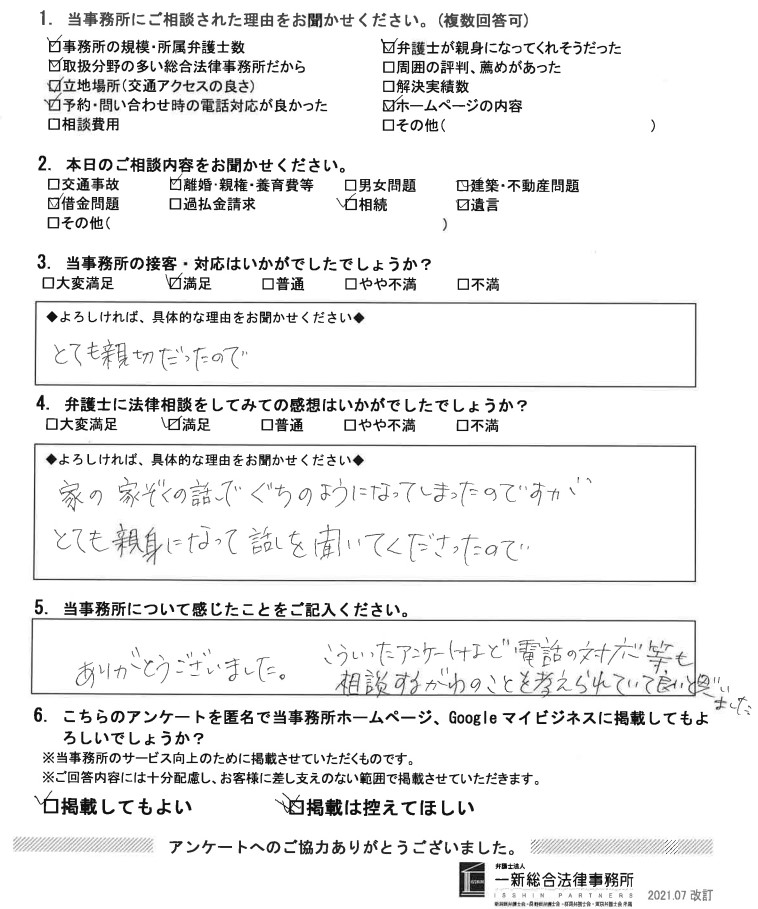 1. 当事務所にご相談された理由をお聞かせください。(複数回答可)
☑事務所の規模・所属弁護士数 ☑弁護士が親身になってくれそうだった
☑取扱分野の多い総合法律事務所だから □周囲の評判、薦めがあった
☑立地場所(交通アクセスの良さ) □解決実績数
☑予約・問い合わせ時の電話対応が良かった ☑ホームページの内容
□相談費用 □その他( )
2. 本日のご相談内容をお聞かせください。
□交通事故 ☑離婚・親権・養育費等 □男女問題 ☑建築・不動産問題
☑借金問題 □過払金請求 ☑相続 ☑遺言
□その他( )
3. 当事務所の接客・対応はいかがでしたでしょうか？
□大変満足 ☑満足 □普通 □やや不満 □不満
◆よろしければ、具体的な理由をお聞かせください◆
とても親切だったので
4. 弁護士に法律相談をしてみての感想はいかがでしたでしょうか？
□大変満足 ☑満足 □普通 □やや不満 □不満
◆よろしければ、具体的な理由をお聞かせください◆
家の家ぞくの話しでぐちのようになってしまったのですが
とても親身になって話しを聞いてくださったので
5. 当事務所について感じたことをご記入ください。
ありがとうございました。
こういったアンケートなど電話の対応等も
相談するがわのことを考えられていて良いと思い
ました
6. こちらのアンケートを匿名で当事務所ホームページ、Googleマイビジネスに掲載してもよ
ろしいでしょうか？
※当事務所のサービス向上のために掲載させていただくものです。
※ご回答内容には十分配慮し、お客様に差し支えのない範囲で掲載させていただきます。
☑掲載してもよい ☑掲載は控えてほしい
アンケートへのご協力ありがとうございました。
弁護士法人
一新総合法律事務所
ISSHIN PARTNERS
2021.07 改訂